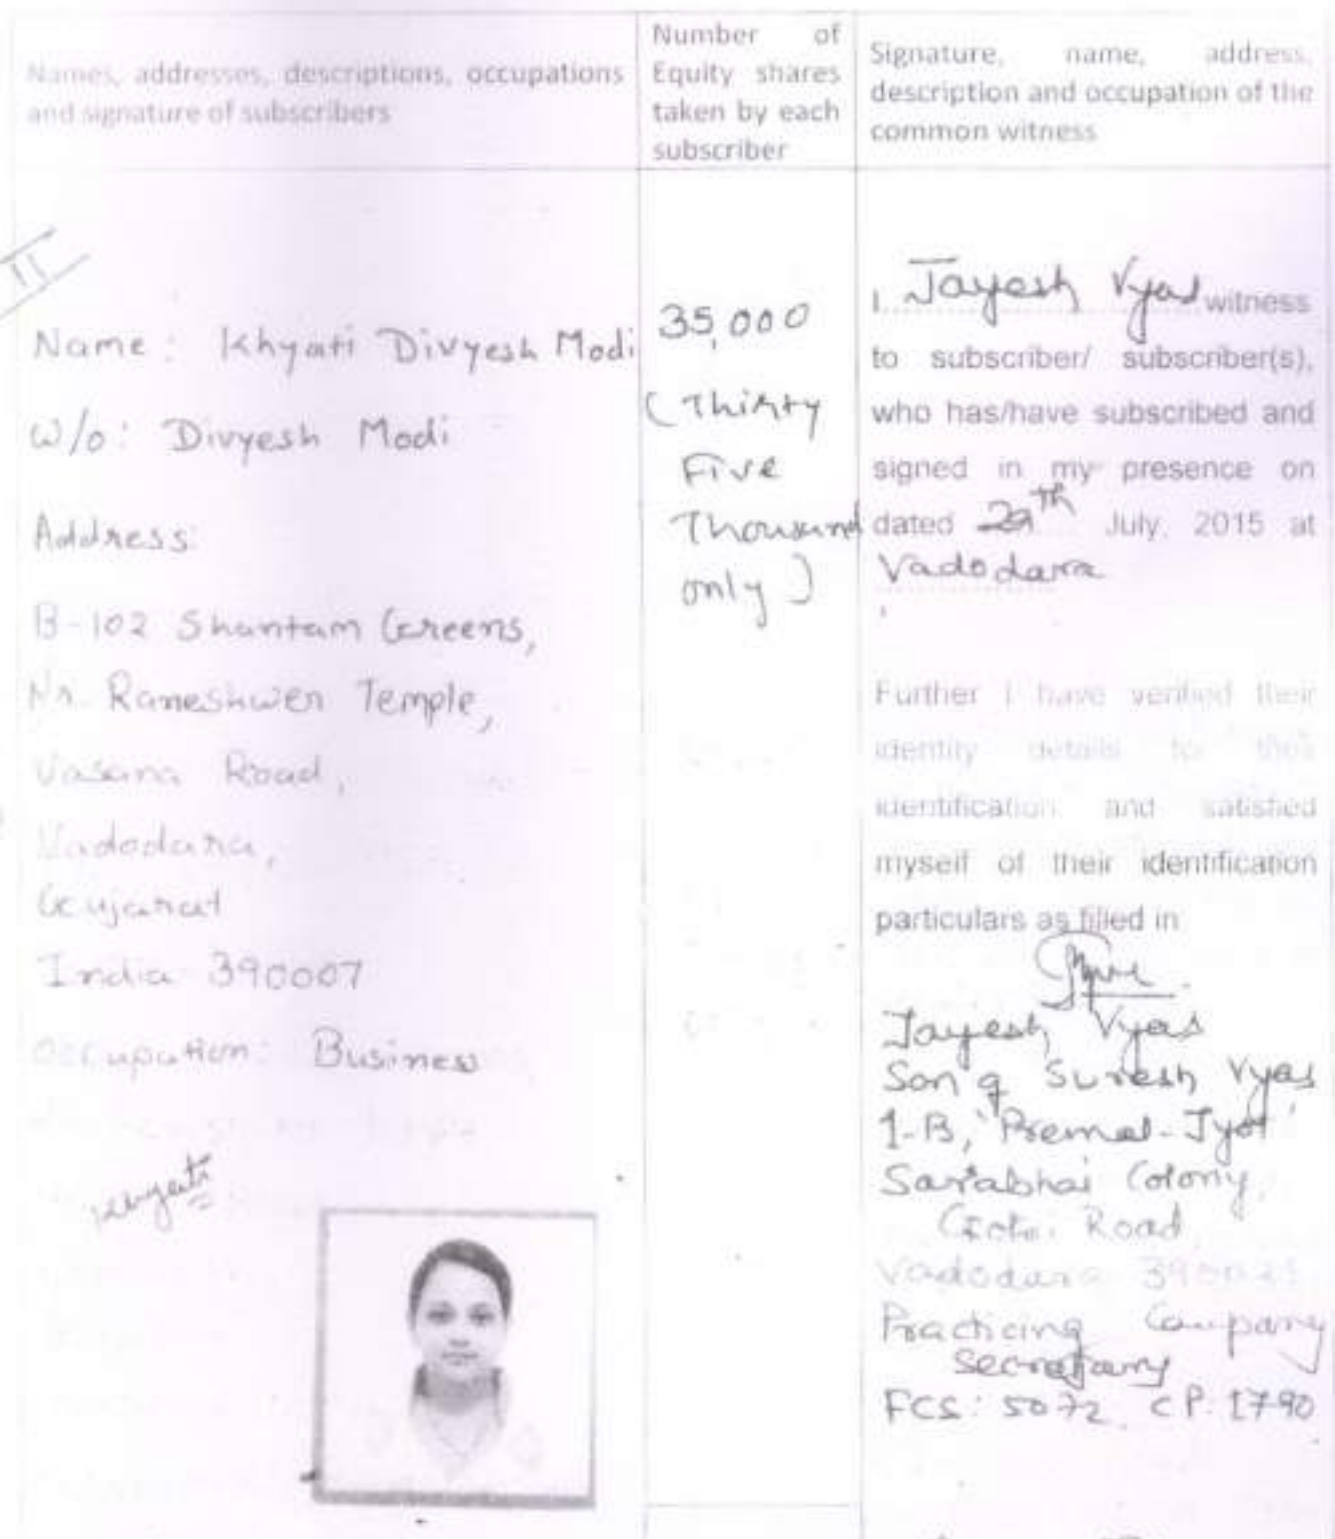 Names, addresses, descriptions, occupations
and signature of subscribers
Number of
Equity shares
taken by each
subscriber
Signature, name, address,
description and occupation of the
common witness
II
Name: Khyati Divyesh Modi
W/o: Divyesh Modi
Address:
B-102 Shantam Greens,
Nr. Raneshwer Temple,
Vasana Road,
Vadodara,
Gujarat
India 390007
Occupation: Business
Khyati
35,000
(Thirty
Five
Thousand
only)
I. Jayesh Vyas witness
to subscriber/ subscriber(s),
who has/have subscribed and
signed in my presence on
dated 29th July, 2015 at
Vadodara
Further I have verified their
identity details for their
identification and satisfied
myself of their identification
particulars as filled in
Jayesh Vyas
Son of Suresh Vyas
1-B, 'Premal-Jyot'
Sarabhai Colony,
Road
Vadodara
Practicing Company
Secretary
FCS: 5072 CP: 1790